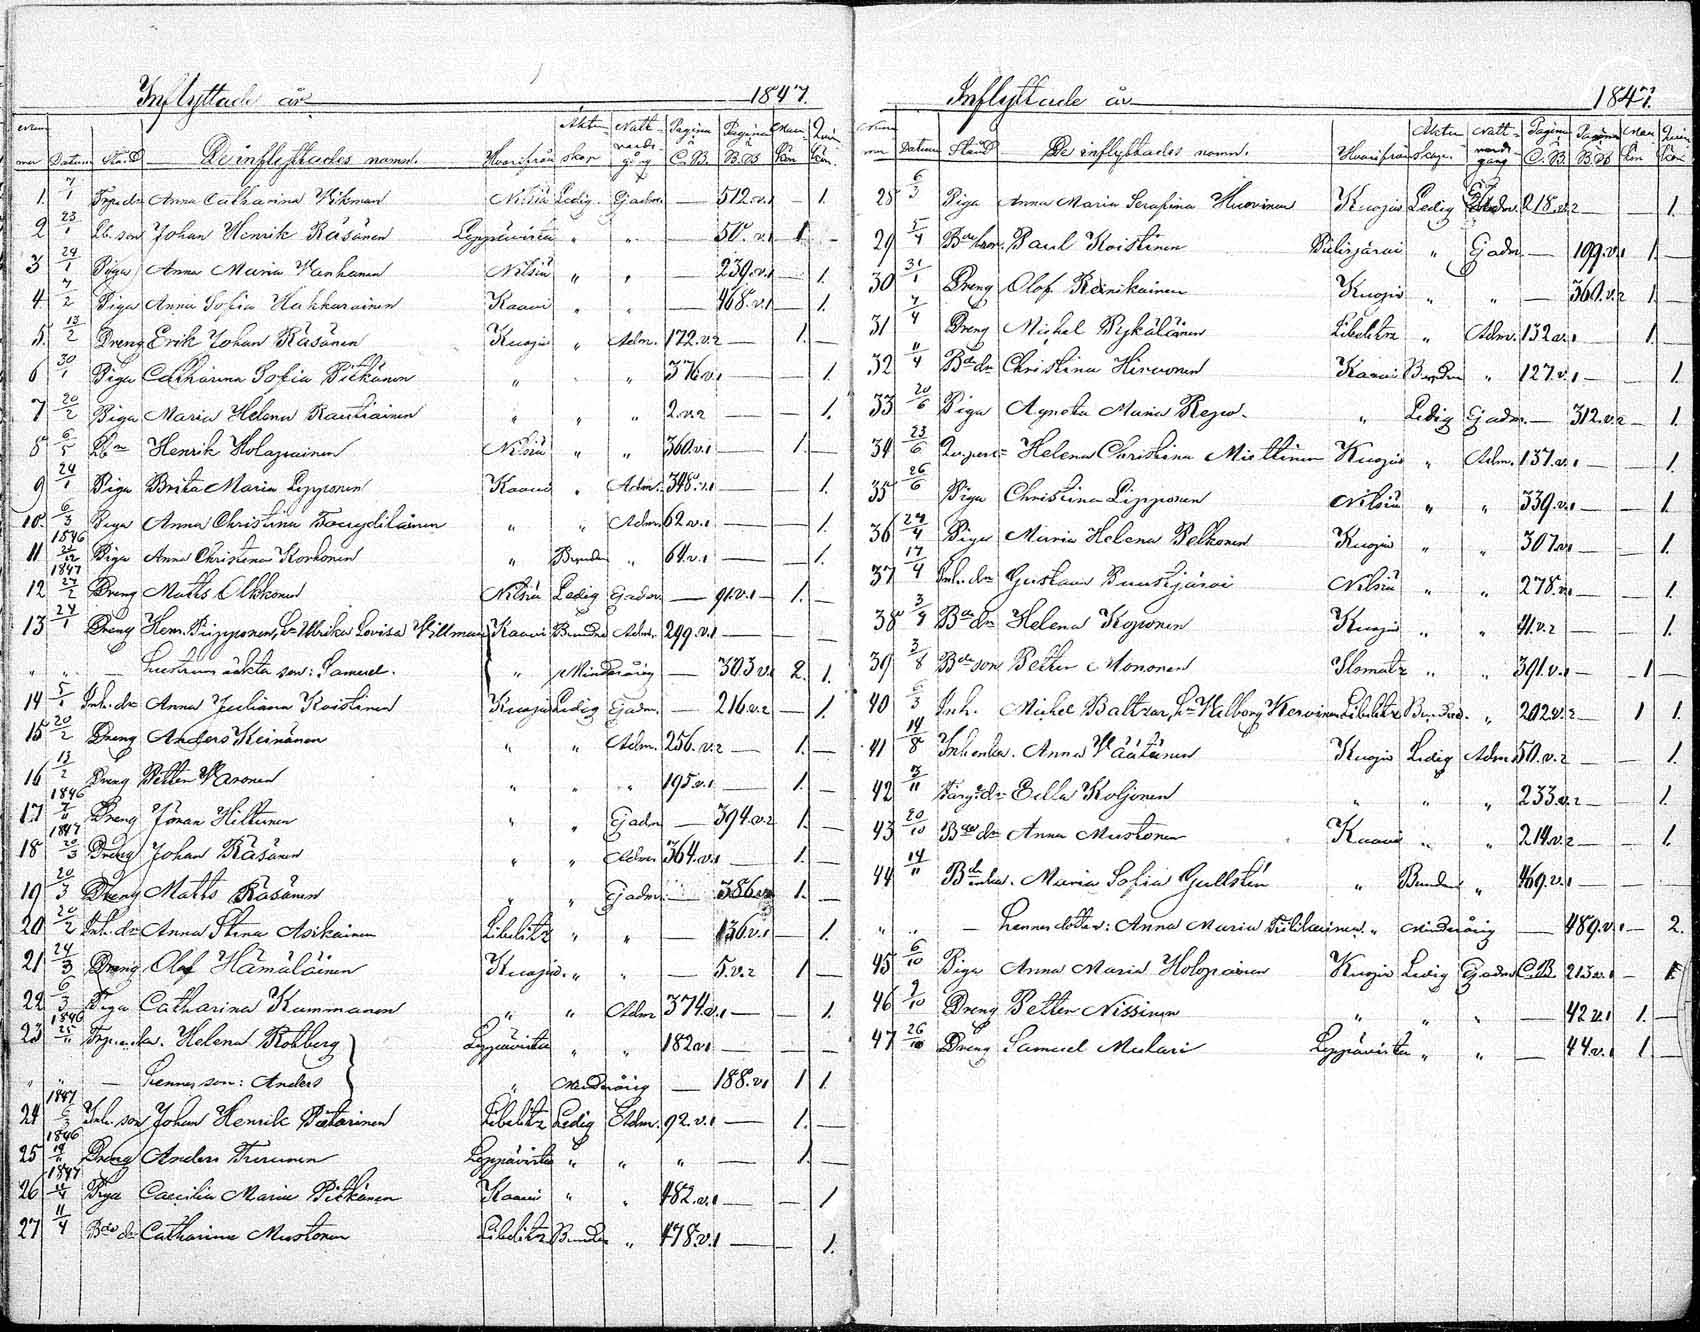 Inflyttade år 1847.
Num mer Datum Stånd De inflyttades namn. Hvarifrån Äkten skap Natt vards gång Pagina å C.B. Pagina å B.B. Man kön Qvin kön.
1. 7/1 Anna Catharina Vikman Nilsiä Ledig Ejadm. — 512.v.1 — 1.
2 23/1 Lb. son Johan Henrik Räsänen Leppävirta " " — 50.v.1 1. —
3 24/1 Piga Anna Maria Vanhanen Nilsiä " " — 239.v.1 — 1.
4. 7/2 Piga Anna Sofia Hakkarainen Kaavi " " — 468.v.1 — 1.
5. 13/2 Dreng Erik Johan Räsänen Kuopio " Adm. 172.v.2 — 1. —
6 30/1 Piga Catharina Sofia Pitkänen " " 376.v.1 — — 1.
7 20/2 Piga Maria Helena Rautiainen " " " 2.v.2 — — 1.
8 6/5 Lbn Henrik Holapainen Nilsiä " " 360.v.1 — 1. —
9 24/1 Piga Brita Maria Lipponen Kaavi " Adm. 348.v.1 — — 1.
10. 6/3 Piga Anna Christina " " Adm 62.v.1 — — 1.
1846
11 Piga Anna Christina Korhonen " Bunden " 64.v.1 — — 1.
1847
12 27/2 Dreng Matts Olkkonen Nilsiä Ledig Ejadm — 91.v.1 1. —
13 24/1 Dreng Henr. Piipponen, h. Ulrika Lovisa Villman Kaavi Bunden Adm. 299.v.1 — — —
" " — hustruns oäkta son: Samuel. " Minderårig — 303.v.1 2. 1.
14 5/1 Inh. dr Anna Juliana Koistinen Kuopio Ledig Ejadm. — 216.v.2 — 1.
15 20/2 Dreng Anders Keinänen " " Adm. 256.v.2 — 1. —
16 13/2 Dreng Petter Varonen " " " 195.v.1 — 1. —
1846
17 7/11 Dreng Jöran Hiltunen " " Ejadm — 394.v.2 1. —
1847
18 20/3 Dreng Johan Räsänen " " Adm 364.v.1 — 1. —
19 20/3 Dreng Matts Räsänen " " Ejadm. — 386.v.1 1. —
20 20/2 Inh. dr Anna Stina Asikainen Libelitz " " — 136.v.1 — 1.
21 24/3 Dreng Olof Hämäläinen Kuopio " " — 5.v.2 1 —
22 6/3 Piga Catharina Kummanen " " Adm 374.v.1 — — 1.
1846
23 25/11 Helena Rotberg Leppävirta " " 182.v.1 — — —
" " — hennes son: Anders " Minderårig — 188.v.1 1 1.
1847
24 6/3 Inh. son Johan Henrik Pätärinen Libelitz Ledig Adm. 92.v.1 — 1. —
1846
25 Dreng Anders Turunen Leppävirta " " " — 1. —
1847
26 Piga Caecilia Maria Pitkänen Kaavi " " 482.v.1 — — 1
27 11/4 Bde dr Catharina Mustonen Libelitz Bunden " 478.v.1 — — 1.
Inflyttade år 1847.
Num mer Datum Stånd De inflyttades namn. Hvarifrån Äkten skap. Natt vards gång Pagina å C.B. Pagina å B.B. Man kön Qvin kön.
28 6/3 Piga Anna Maria Serafina Huovinen Kuopio Ledig Adm. 218.v.2 — — 1.
29 5/4 Paul Koistinen Pielisjärvi " Ejadm. — 109.v.1 1. —
30 31/1 Dreng Olof Reinikainen Kuopio " " — 360.v.2 1. —
31 7/4 Dreng Michel Pykäläinen Libelitz " Adm. 132.v.1 — 1. —
32 11/4 Bde dr Christina Hirvonen Kaavi Bunden " 127.v.1 — — 1.
33 20/6 Piga Agneta Maria Repo. " Ledig Ejadm. — 312.v.2 — 1.
34 23/6 Qv.pers= Helena Christina Miettinen Kuopio " Adm. 137.v.1 — — 1.
35 26/6 Piga Christina Lipponen Nilsiä " " 339.v.1 — — 1.
36 24/4 Piga Maria Helena Pelkonen Kuopio " " 307.v.1 — — 1.
37 17/4 Inh. dr Gustava Puustjärvi Nilsiä " " 278.v.1 — — 1.
38 Bde dr Helena Koponen Kuopio " " 41.v.2 — — 1.
39 3/8 Bde son Petter Mononen Ilomantz " " 391.v.1 — 1 —
40 6/3 Inh. Michel Baltzar, h. Valborg Kervinen Libelitz Bunden. " 202.v.2 — 1 1.
41 14/8 Inh.enka. Anna Väätäinen Kuopio Ledig Adm. 50.v.2 — — 1.
42 Torp. dr Eella Koljonen " " " 233.v.2 — — 1.
43 20/10 Bde dr Anna Mustonen Kaavi " " 214.v.2 — — 1.
44 14/11 Bde enka. Maria Sofia Gullstén " Bunden " 469.v.1 — — —
" " — hennes dotter: Anna Maria Tiilikainen. " Minderårig — 489.v.1 — 2.
45 6/10 Piga Anna Maria Holopainen Kuopio Ledig Ejadm C.B. 213.v.1 — 1
46 2/10 Dreng Petter Nissinen " " " — 42.v.1 1. —
47 26/10 Dreng Samuel Mulari Leppävirta " " — 44.v.1 1 —